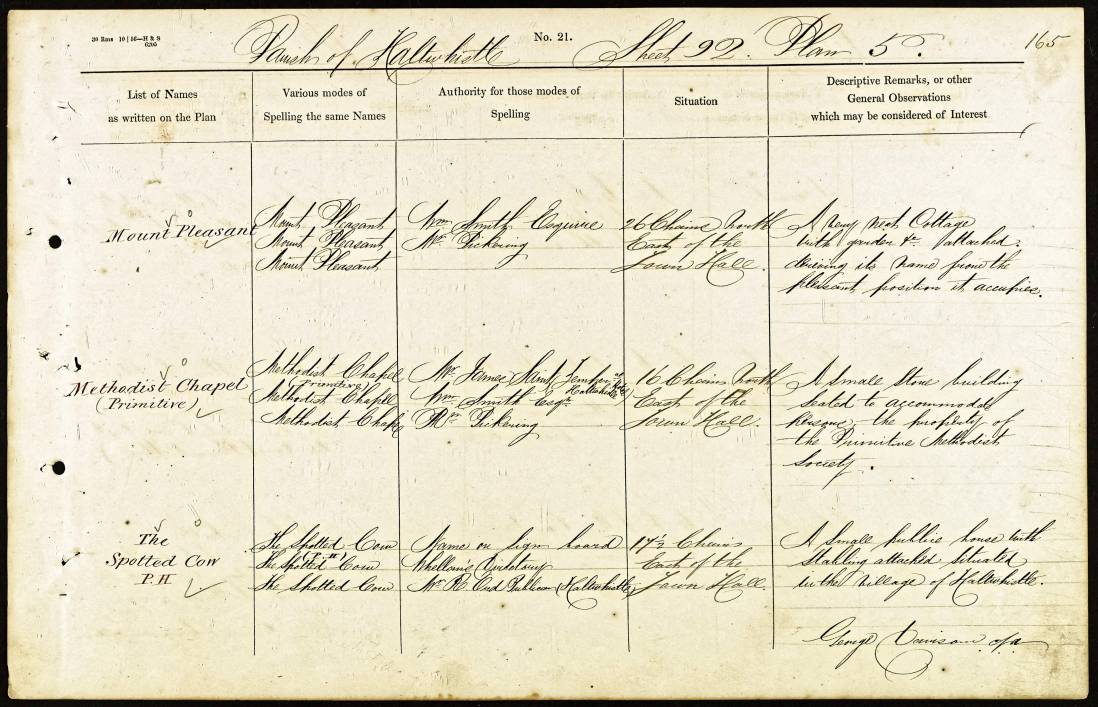 30 Rms 10 | 56—H & S
6205
No. 21.
Parish of Haltwhistle Sheet 92 Plan 5.
165
List of Names
as written on the Plan
Various modes of
Spelling the same Names
Authority for those modes of
Spelling
Situation
Descriptive Remarks, or other
General Observations
which may be considered of Interest
Mount Pleasant
Mount Pleasant
Mount Pleasant
Mount Pleasant
Wm Smith Esquire
Mr Pickering
26 Chains North
East of the
Town Hall.
A very neat Cottage
with garden &c attached:
deriving its name from the
pleasant position it occupies.
Methodist Chapel
(Primitive)
Methodist Chapel
(Primitive)
Methodist Chapel
Methodist Chapel
Mr James Saint
Haltwhistle
Wm Smith Esqr
Pickering
16 Chains North
East of the
Town Hall.
A Small Stone building
seated to accommodate
persons, the property of
the Primitive Methodist
Society.
The
Spotted Cow
P.H
The Spotted Cow
(P.H)
The Spotted Cow
The Spotted Cow
Name on Sign board
Whellan's Directory
Mr R. Ord Publican (Haltwhistle)
17½ Chains
East of the
Town Hall.
A Small public house with
Stabling attached situated
in the Village of Haltwhistle.
George